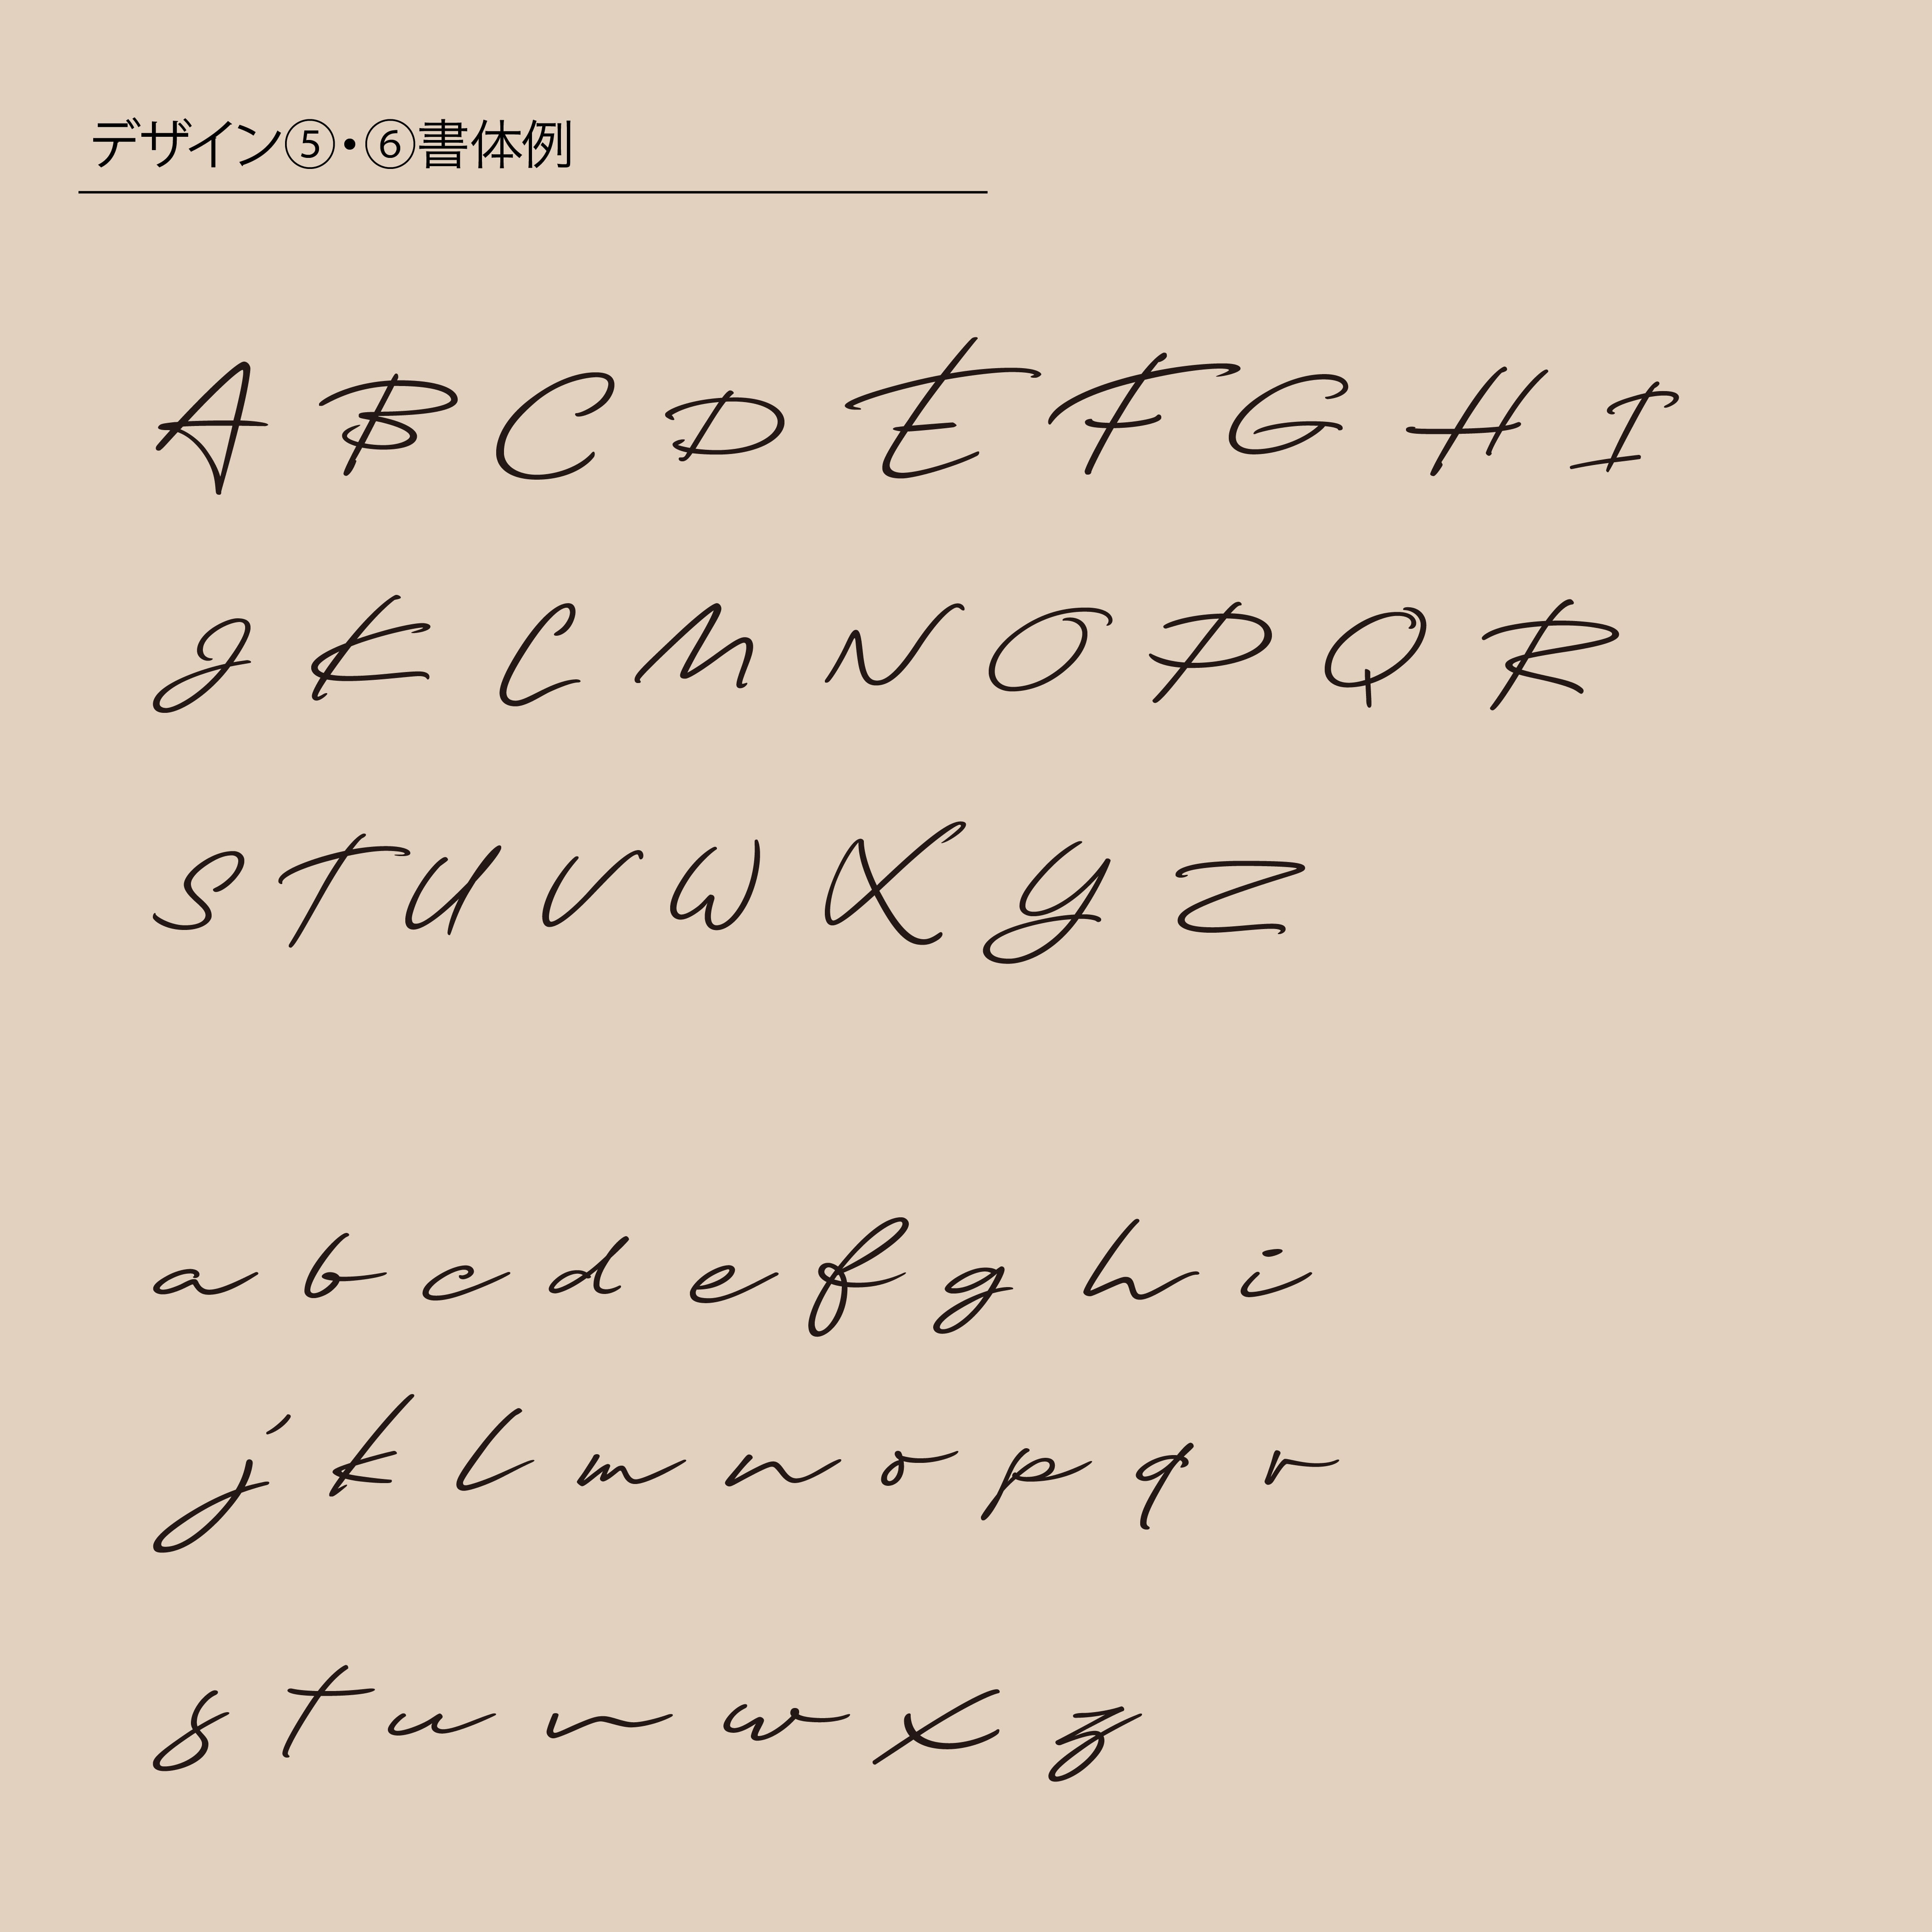 デザイン⑤・⑥書体例
A B C D E F G H I
J K L M N O P Q R
S T U V W X Y Z
a b c d e f g h i
j k l m n o p q r
s t u v w x z